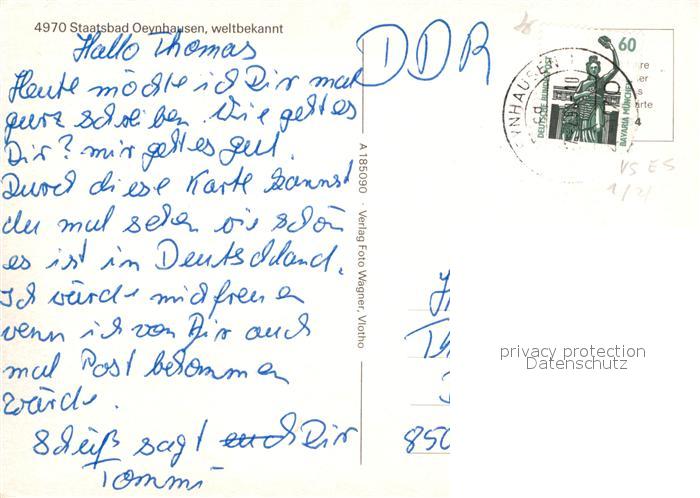 4970 Staatsbad Oeynhausen, weltbekannt
Hallo Thomas
Heute möchte ich Dir mal
gurz schreiben. Wie geht es
Dir? mir geht es gut.
Durch diese Karte kannst
du mal sehen wie schön
es ist in Deutschland.
Ich würde mich freuen
wenn ich von Dir auch
mal Post bekommen
würde.
sagt Dir
Tommi
A 185090 · Verlag Foto Wagner, Vlotho
DDR
60
DEUTSCHE BUNDESPOST
BAVARIA MÜNCHEN
YNHAUSEN 1
VS ES
privacy protection
Datenschutz
850